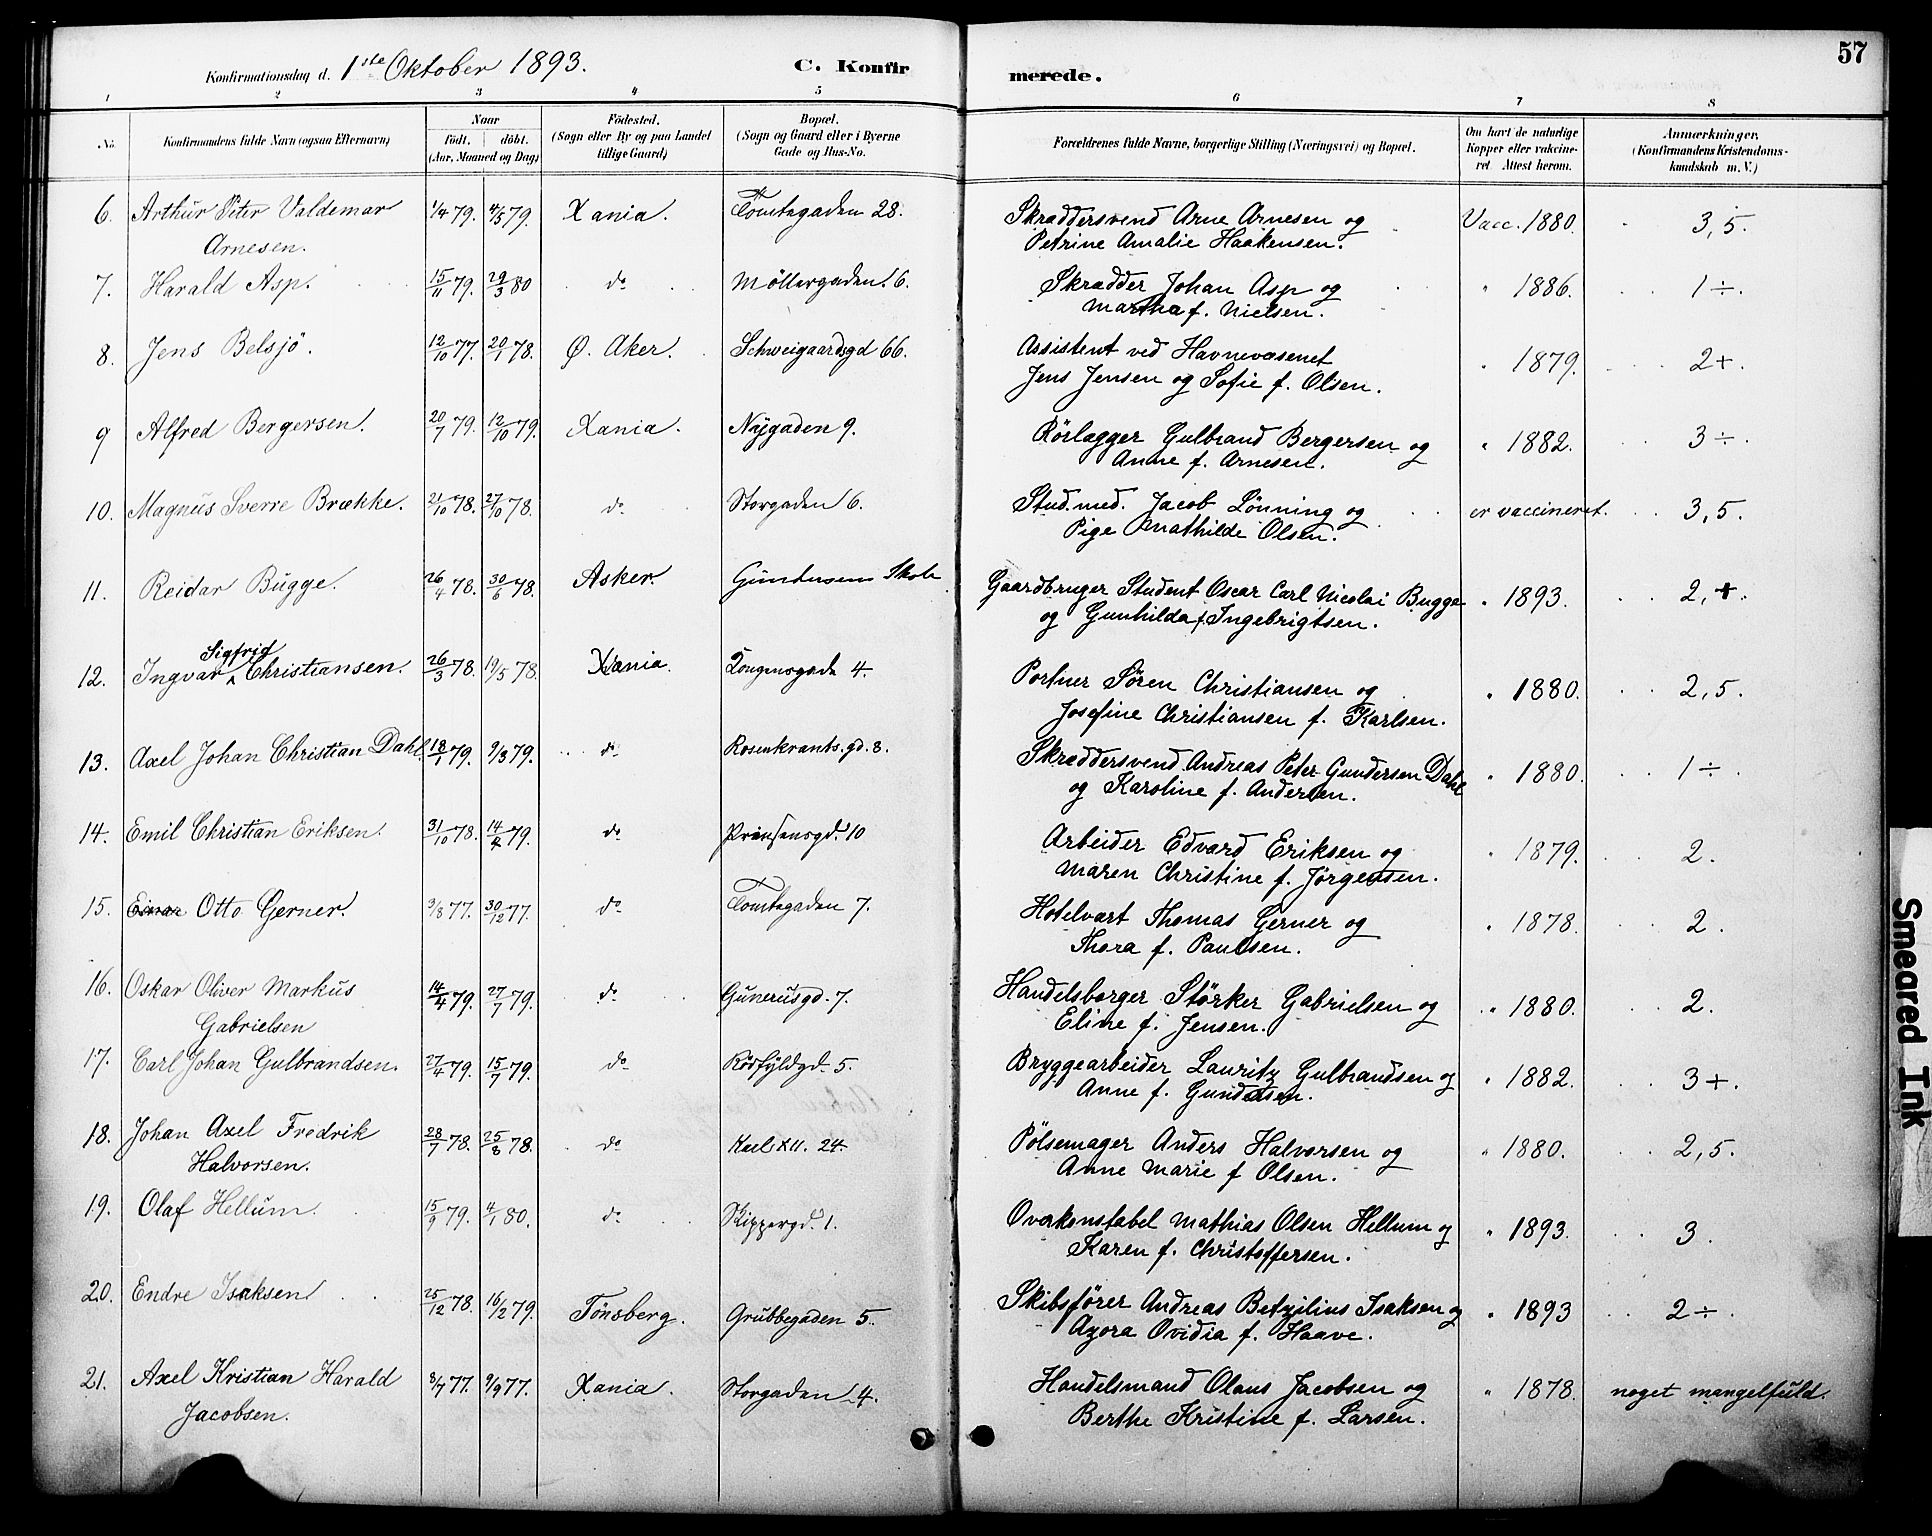 57
Konfirmationsdag d. 1ste Oktober 1893. C. Konfirmerede.
1 2 3 4 5 6 7 8
No. Konfirmandens fulde Navn (ogsaa Efternavn) Naar født. døbt. (Aar, Maaned og Dag) Fødested. (Sogn eller By og paa Landet tillige Gaard) Bopæl. (Sogn og Gaard eller i Byerne Gade og Hus-No. Forældrenes fulde Navne, borgerlige Stilling (Næringsvei) og Bopæl. Om havt de naturlige Kopper eller vakcineret. Attest herom. Anmærkninger. (Konfirmandens Kristendomskundskab m. V.)
6. Arthur Peter Valdemar 1/4 79. 4/5 79. Xania. Tomtegaden 28. Skræddersvend Arne Arnesen og Vacc. 1880. 3,5.
Arnesen. Petrine Amalie Haakensen.
7. Harald Asp. 15/11 79. 29/3 80 do Møllergaden 6. Skrædder Johan Asp og " 1886. 1÷.
Martha f. Nielsen.
8. Jens Belsjö. 12/10 77. 20/1 78. Ø. Aker. Schweigaardsgd 66. Assistent ved Havnevæsenet " 1879. 2+.
Jens Jensen og Sofie f. Olsen.
9 Alfred Bergersen. 20/7 79. 12/10 79. Xania. Nygaden 9. Rörlægger Gulbrand Bergersen og " 1882. 3÷.
Anne f. Arnesen.
10. Magnus Sverre Brække. 21/10 78. 27/10 78. do Storgaden 6. Stud. med. Jacob Lönning og er vaccineret. 3,5.
Pige Mathilde Olsen.
11. Reidar Bugge. 26/4 78. 30/6 78. Asker. Gundersens Skole Gaardbruger Student Oscar Carl Nicolai Bugge " 1893. 2,+.
og Gunhilda f. Ingebrigtsen.
12. Ingvar Sigfrid Christiansen. 26/3 78. 19/5 78. Xania. Kongensgade 4. Portner Søren Christiansen og " 1880. 2,5.
Josefine Christiansen f. Karlsen.
13. Axel Johan Christian Dahl. 18/1 79. 9/3 79. do Rosenkrants.gd. 8. Skræddersvend Andreas Peter Gundersen Dahl " 1880. 1÷.
og Karoline f. Andersen.
14. Emil Christian Eriksen. 31/10 78. 14/4 79. do Prinsensgd. 10 Arbeider Edvard Eriksen og " 1879. 2.
Maren Christine f. Jørgensen.
15. Einar Otto Gerner. 3/8 77. 30/12 77. do Tomtegaden 7. Hotelvært Thomas Gerner og " 1878. 2.
Thora f. Paulsen.
16. Oskar Oliver Markus 14/4 79. 27/7 79. do Gunerusgd. 7. Handelsborger Størker Gabrielsen og " 1880. 2.
Gabrielsen Eline f. Jensen.
17. Carl Johan Gulbrandsen. 27/4 79. 15/7 79. do Rödfyldgd. 5. Bryggearbeider Lauritz Gulbrandsen og " 1882. 3+.
Anne f. Gundersen.
18. Johan Axel Fredrik 28/7 78. 25/8 78. do Karl XII. 24. Pölsemager Anders Halvorsen og " 1880. 2,5.
Halvorsen. Anne Marie f Olsen.
19. Olaf Hellum. 15/9 79. 4/1 80. do Skippergd. 1. Overkonstabel Mathias Olsen Hellum og " 1893. 3.
Karen f. Christoffersen.
20. Endre Isaksen 25/12 78. 16/2 79. Tönsberg. Grubbegaden 5. Skibsfører Andreas Betzilius Isaksen og " 1893 2÷
Azora Ovidia f. Haave.
21. Axel Kristian Harald 8/7 77. 9/9 77. Xania. Storgaden 4. Handelsmand Olaus Jacobsen og " 1878. noget mangelfuld.
Jacobsen. Berthe Kristine f. Larsen.
Smeared Ink